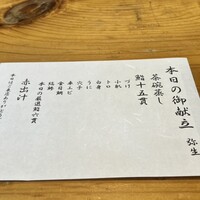 本日の御献立
弥生
茶碗蒸し
鮨十五貫
づけ
小肌
トロ
白身
うに
穴子
車えび
金目鯛
鮑
本日の厳選鮨六貫
赤出汁